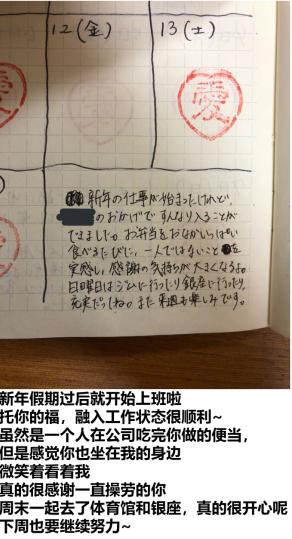 12(金)
13(土)
愛
新年の仕事が始まったけれど、
のおかげですんなり入ることが
できました。お弁当をおなかいっぱい
食べるたびに、一人ではないことを
実感し、感謝の気持ちが大きくなるよ。
日曜日はジムに行ったり銀座に行ったり、
充実だったね。また来週も楽しみです。
新年假期过后就开始上班啦
托你的福，融入工作状态很顺利~
虽然是一个人在公司吃完你做的便当，
但是感觉你也坐在我的身边
微笑着看着我
真的很感谢一直操劳的你
周末一起去了体育馆和银座，真的很开心呢
下周也要继续努力~